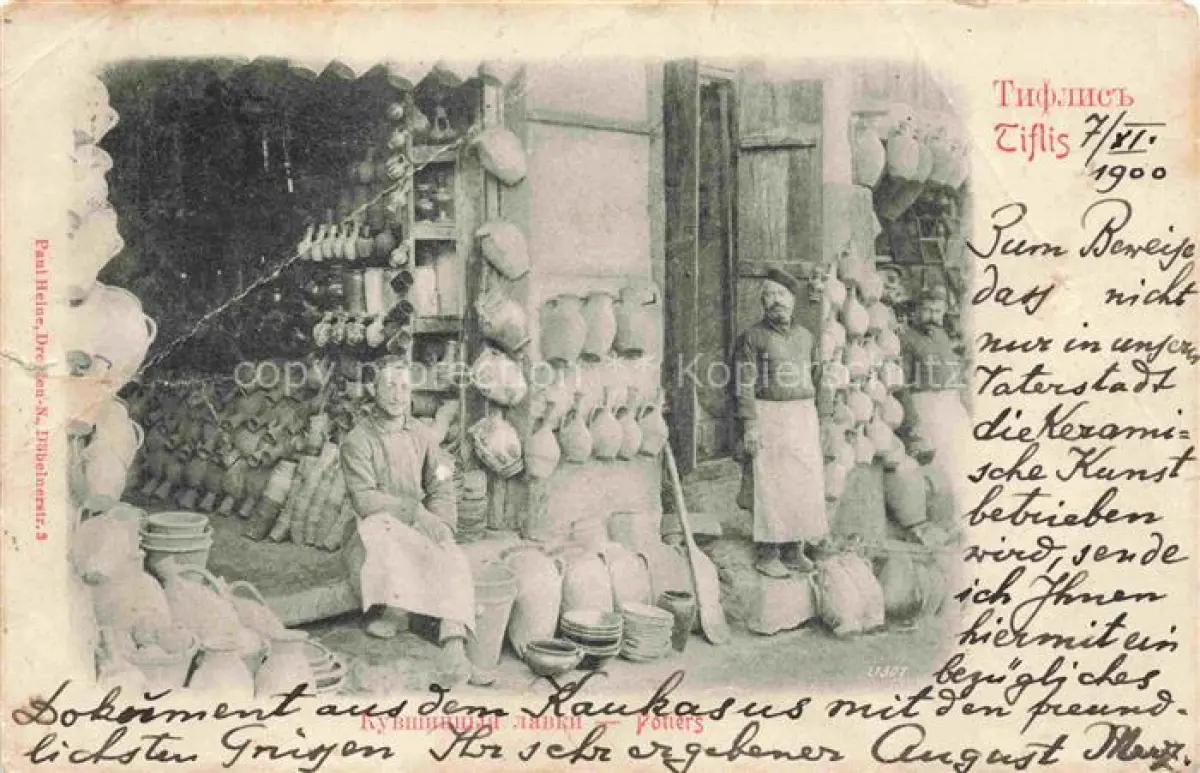 Тифлисъ
Tiflis 7/XI.
1900
Zum Beweise
dass nicht
nur in unserer
Vaterstadt
die Kerami=
sche Kunst
betrieben
wird, sende
ich Ihnen
hiermit ein
bezügliches
Dokument aus dem Kaukasus mit den freund-
lichsten Grüssen Ihr sehr ergebener August Merz.
Кувшинныя лавки — Potiers
Paul Heine, Dresden-N., Döbelnerstr. 3
copyright Kopierschutz